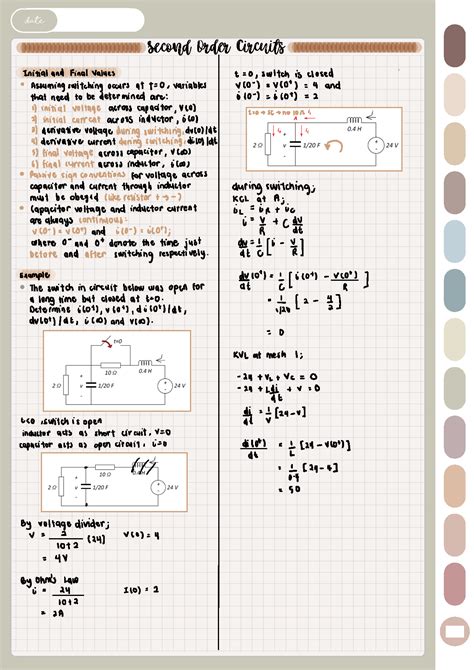 date
Second Order Circuits
Initial and Final Values
• Assuming switching occurs at t=0, variables
that need to be determined are:
1) initial voltage across capacitor, v(0)
2) initial current across inductor, i(0)
3) derivative voltage during switching, dv(0)/dt
4) derivative current during switching, di(0)/dt
5) final voltage across capacitor, v(∞)
6) final current across inductor, i(∞)
• Passive sign conventions for voltage across
capacitor and current through inductor
must be obeyed (like resistor + → -)
• Capacitor voltage and inductor current
are always continuous:
v(0⁻) = v(0⁺) and i(0⁻) = i(0⁺);
where 0⁻ and 0⁺ denote the time just
before and after switching respectively.
Example
• The switch in circuit below was open for
a long time but closed at t=0.
Determine i(0⁺), v(0⁺), di(0⁺)/dt,
dv(0⁺)/dt, i(∞) and v(∞).
t=0
10 Ω
0.4 H
2 Ω
+
v
-
1/20 F
24 V
t<0, switch is open
inductor acts as short circuit, v=0
capacitor acts as open circuit, i=0
10 Ω
2 Ω
+
v
-
1/20 F
24 V
By voltage divider;
V = 2/(10+2) (24)
V(0) = 4
= 4V
By Ohm's Law
i = 24/(10+2)
I(0) = 2
= 2A
t=0, switch is closed
v(0⁻) = v(0⁺) = 4 and
i(0⁻) = i(0⁺) = 2
0.4 H
2 Ω
+
v
-
1/20 F
24 V
during switching;
KCL at A;
iL = iR + ic
i = V/R + C dv/dt
dv/dt = 1/C [i - V/R]
dv(0⁺)/dt = 1/C [i(0⁺) - v(0⁺)/R]
= 1/(1/20) [2 - 4/2]
= 0
KVL at mesh 1;
-24 + VL + Vc = 0
-24 + L di/dt + v = 0
di/dt = 1/L [24-v]
di(0⁺)/dt = 1/L [24 - v(0⁺)]
= 1/0.4 [24 - 4]
= 50